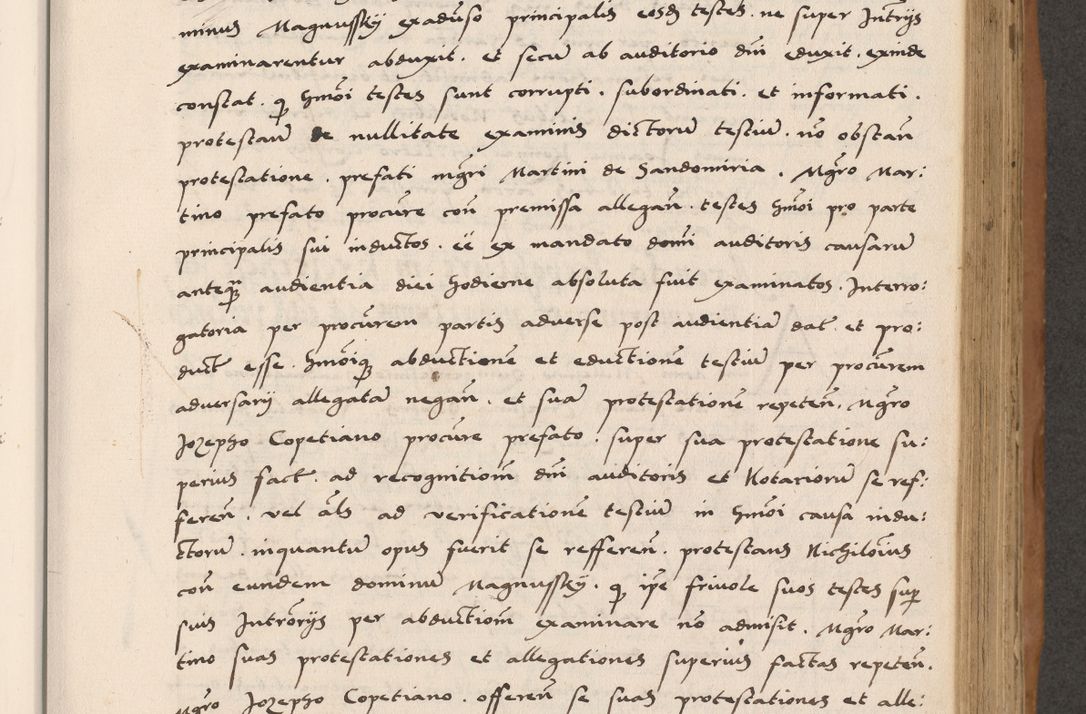 minus Magnussky exaduso principalis eosd testes. ne super Intrijs
examinarentur abduxit. et secu ab auditorio dni eduxit. exinde
constat. q hmoi testes sunt corrupti. subordinati. et informati.
protestau de nullitate examinis dictoru testiu. no obstan
protestatione. prefati mgri Martini de Sandomiria. Mgro Mar:
tino prefato procure con premissa allegan. testes hmoi pro parte
principalis sui inductos. ee ex mandato domi auditoris causaru
anteq audientia diei hodierne absoluta fuit examinatos. Interro:
gatoria per procurem partis adverse post audientia dat et pro:
duct esse. hmoiq abductione et eductione testiu per procurem
adversarij allegata negan. et sua protestatione repeten. Mgro
Jozepho Copetiano procure prefato. super sua protestatione su:
perius fact. ad recognitiom dni auditoris et Notarioru se ref:
feren. vel als ad verificatione testiu in hmoi causa indu:
ctoru. inquantu opus fuerit se refferen. protestans Nichilois
con eundem dominu Magnussky. q ipe friuole suos testes sup
suis Introrijs per abductiom examinare no admisit. Mgro Mar:
tino suas protestationes et allegationes superius factas repeten.
Mgro Jozepho Copetiano. offeren se suas protestationes et alle: